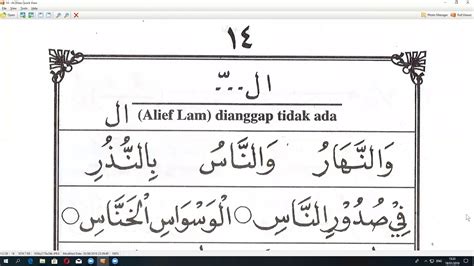 ١٤
ال...ّ
ال (Alief Lam) dianggap tidak ada
وَالنَّهَارُ وَالنَّاسُ بِالنُّذُرِ
فِيْ صُدُوْرِ النَّاسِ ○ الْوَسْوَاسِ الْخَنَّاسِ ○